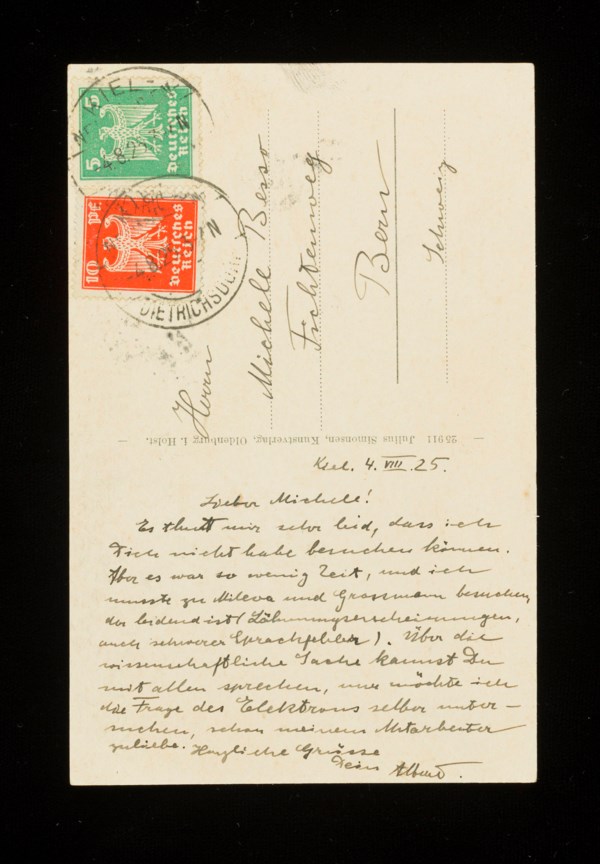 5
5
Deutsches
Reich
10
Pf
Deutsches
Reich
KIEL
DIETRICHSDORF
Herrn
Michele Besso
Bern
Schweiz
25911 Julius Simonsen, Kunstverlag, Oldenburg i. Holst.
Kiel. 4. VIII. 25.
Lieber Michele!
Es thut mir sehr leid, dass ich
Dich nicht habe besuchen können.
Aber es war so wenig Zeit, und ich
musste zu Mileva und Grossmann besuchen,
der leidend ist (Lähmungserscheinungen,
auch schwerer Sprachfehler). Über die
wissenschaftliche Sache kannst Du
mit allen sprechen, nur möchte ich
die Frage des Elektrons selber unter-
suchen, schon meinem Mitarbeiter
zuliebe. Herzliche Grüsse
Dein Albert.